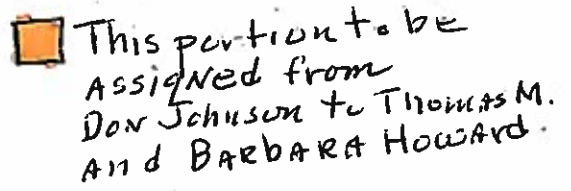 This portion to be
Assigned from
Don Johnson to Thomas M.
And Barbara Howard.